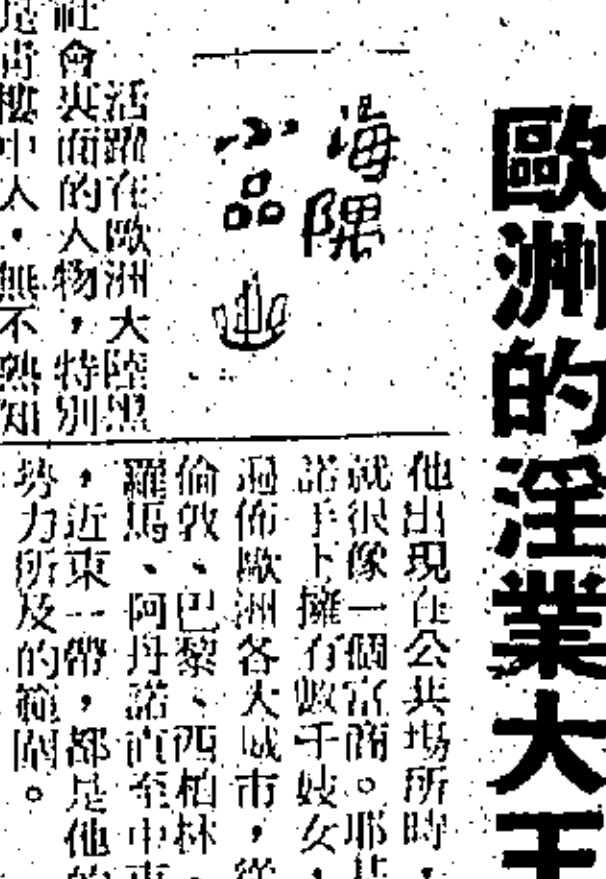 歐洲的淫業大王
海隅
小品
活躍在歐洲大陸黑
社會裏面的人物，特別
是青樓中人，無不熟知
他出現在公共場所時，
就很像一個富商。耶基
諾手下擁有數千妓女，
遍佈歐洲各大城市，從
倫敦、巴黎、西柏林、
羅馬、阿丹諾直至中東
，近東一帶，都是他的
勢力所及的範圍。